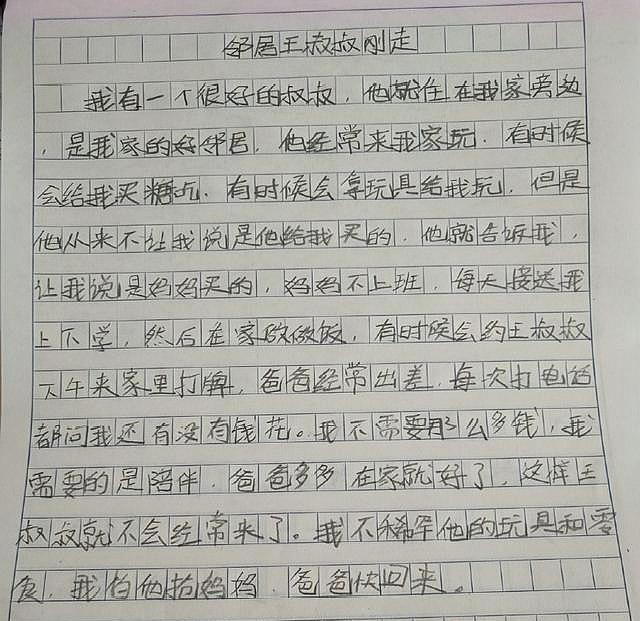 邻居王叔叔刚走
我有一个很好的叔叔，他就住在我家旁边
，是我家的好邻居，他经常来我家玩．有时候
会给我买糖吃．有时候会拿玩具给我玩，但是
他从来不让我说是他给我买的．他就告诉我，
让我说是妈妈买的，妈妈不上班，每天接送我
上下学，然后在家做做饭，有时候会约王叔叔
下午来家里打牌，爸爸经常出差，每次打电话
都问我还有没有钱花。我不需要那么多钱，我
需要的是陪伴．爸爸多多在家就好了，这样王
叔叔就不会经常来了。我不稀罕他的玩具和零
食，我怕他抢妈妈．爸爸快回来。